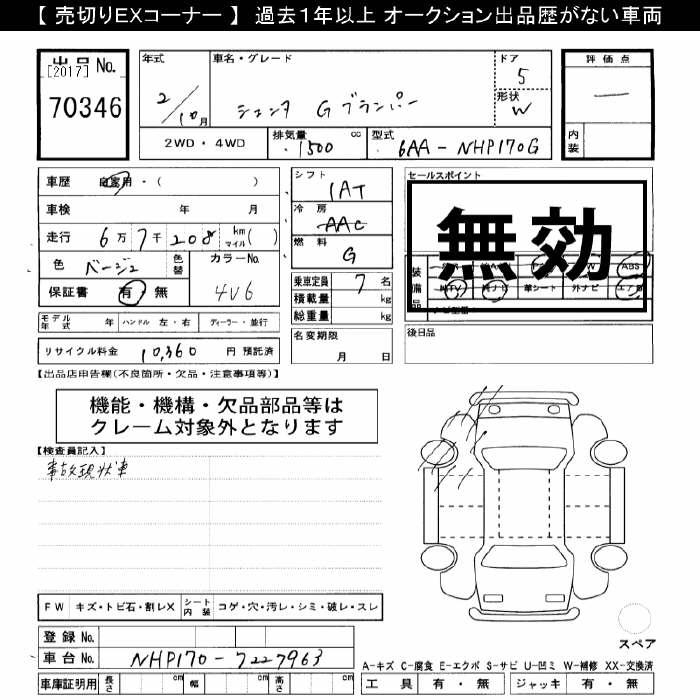 【 売切りEXコーナー 】 過去1年以上 オークション出品歴がない車両
出品 No.
[2017]
70346
年式
2/10月
車名・グレード
シエンタ G グランパー
ドア
5
形状
W
評価点
—
内装
2WD・4WD
排気量
1500
cc
型式
6AA-NHP170G
車歴 自家用・( )
車検 年 月
走行 6万7千208 km マイル( )
色 ベージュ
色替
カラーNo.
4V6
保証書 有・無
シフト
IAT
冷房
AAC
燃料
G
乗車定員 7 名
積載量 kg
総重量 kg
セールスポイント
無効
装備品
ABS
純TV 純ナビ 革シート 外ナビ エアB
ナビ型番
モデル年式 年 ハンドル 左・右 ディーラー・並行
リサイクル料金 10,360 円 預託済
名変期限
月 日
後日品
【出品店申告欄(不良箇所・欠品・注意事項等)】
機能・機構・欠品部品等は
クレーム対象外となります
【検査員記入】
事故現状車
FW キズ・トビ石・割レX シート内装 コゲ・穴・汚レ・シミ・破レ・スレ
登録 No.
車台 No. NHP170-7227963
車庫証明用 長さ cm 幅 cm 高さ cm
スペア
A-キズ C-腐食 E-エクボ S-サビ U-凹ミ W-補修 XX-交換済
工具 有・無 ジャッキ 有・無